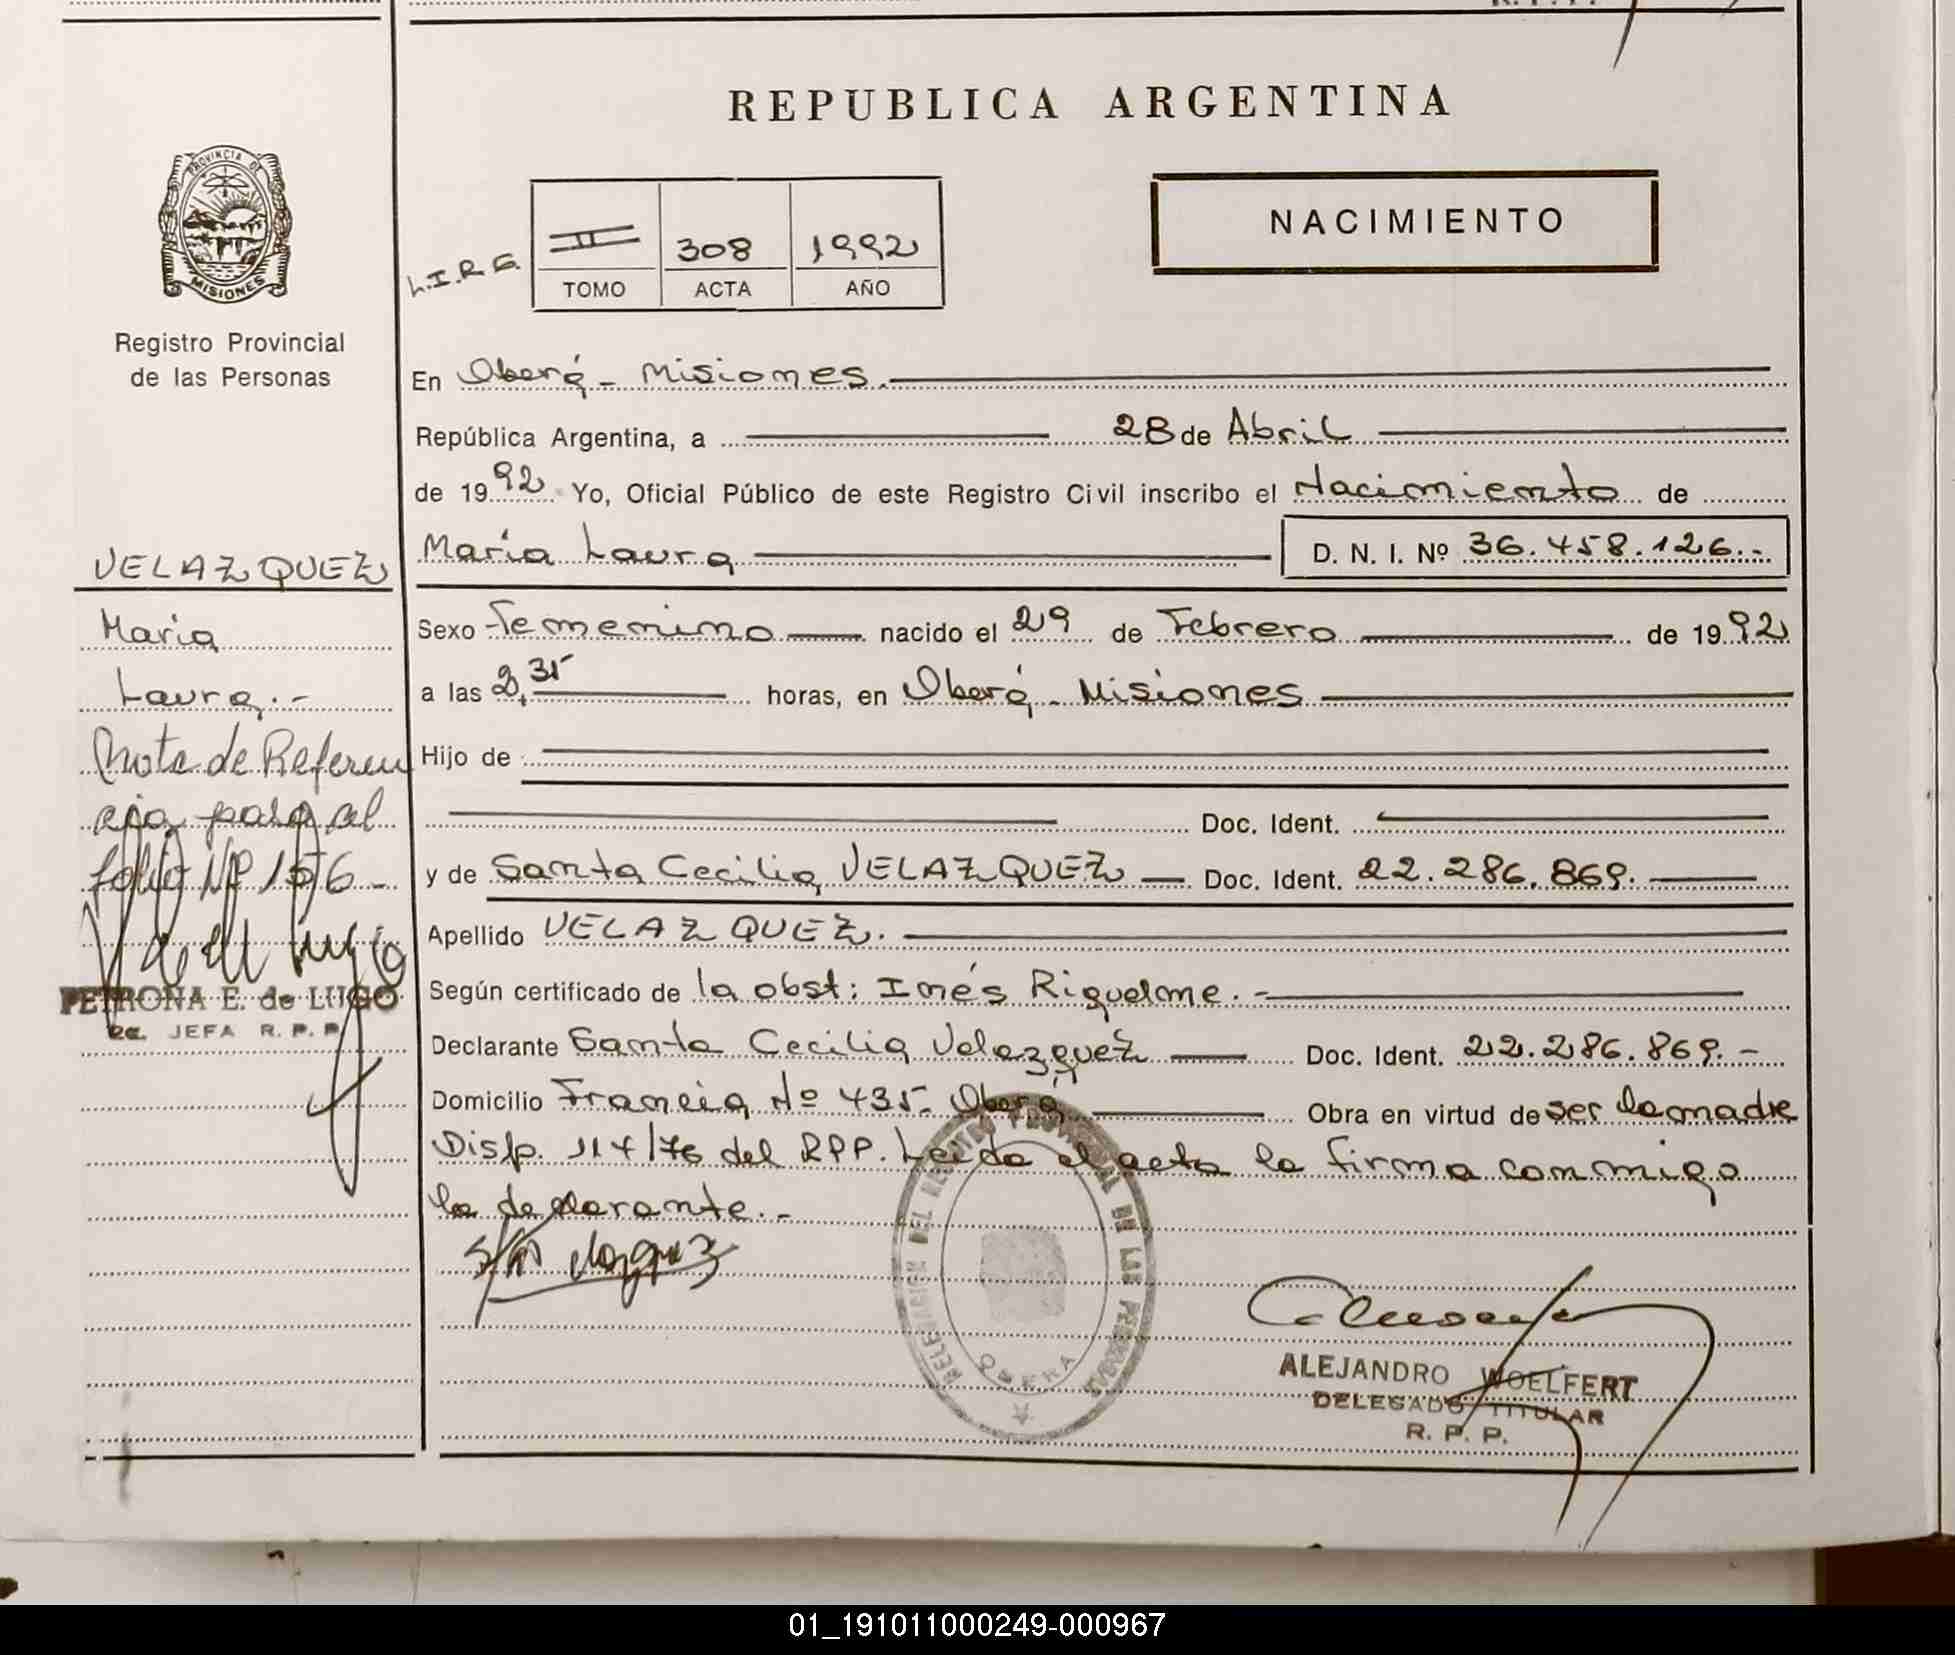 R. P. P.
REPUBLICA ARGENTINA
PROVINCIA DE
MISIONES
Registro Provincial
de las Personas
L.I.R.G.
II 308 1992
TOMO ACTA AÑO
NACIMIENTO
En Oberá - Misiones.
República Argentina, a 28 de Abril
de 1992 Yo, Oficial Público de este Registro Civil inscribo el Nacimiento de
María Laura D. N. I. Nº 36.458.126.-
Sexo Femenino nacido el 29 de Febrero de 1992
a las 2,35 horas, en Oberá - Misiones
Hijo de
Doc. Ident.
y de Santa Cecilia VELAZQUEZ Doc. Ident. 22.286.869.
Apellido VELAZQUEZ.
Según certificado de la obst: Inés Riquelme.-
Declarante Santa Cecilia Velazquez Doc. Ident. 22.286.869.-
Domicilio Francia Nº 435- Oberá Obra en virtud de ser la madre
Disp. 117/76 del RPP. Leida el acta la firma conmigo
la declarante.-
VELAZQUEZ
María
Laura.-
Nota de Referen
cia pasa al
folio Nº 156-
PETRONA E. de LUGO
JEFA R. P. P.
DELEGACION DEL REGISTRO PROVINCIAL DE LAS PERSONAS
OBERA
ALEJANDRO WOELFERT
DELEGADO TITULAR
R. P. P.
01_191011000249-000967